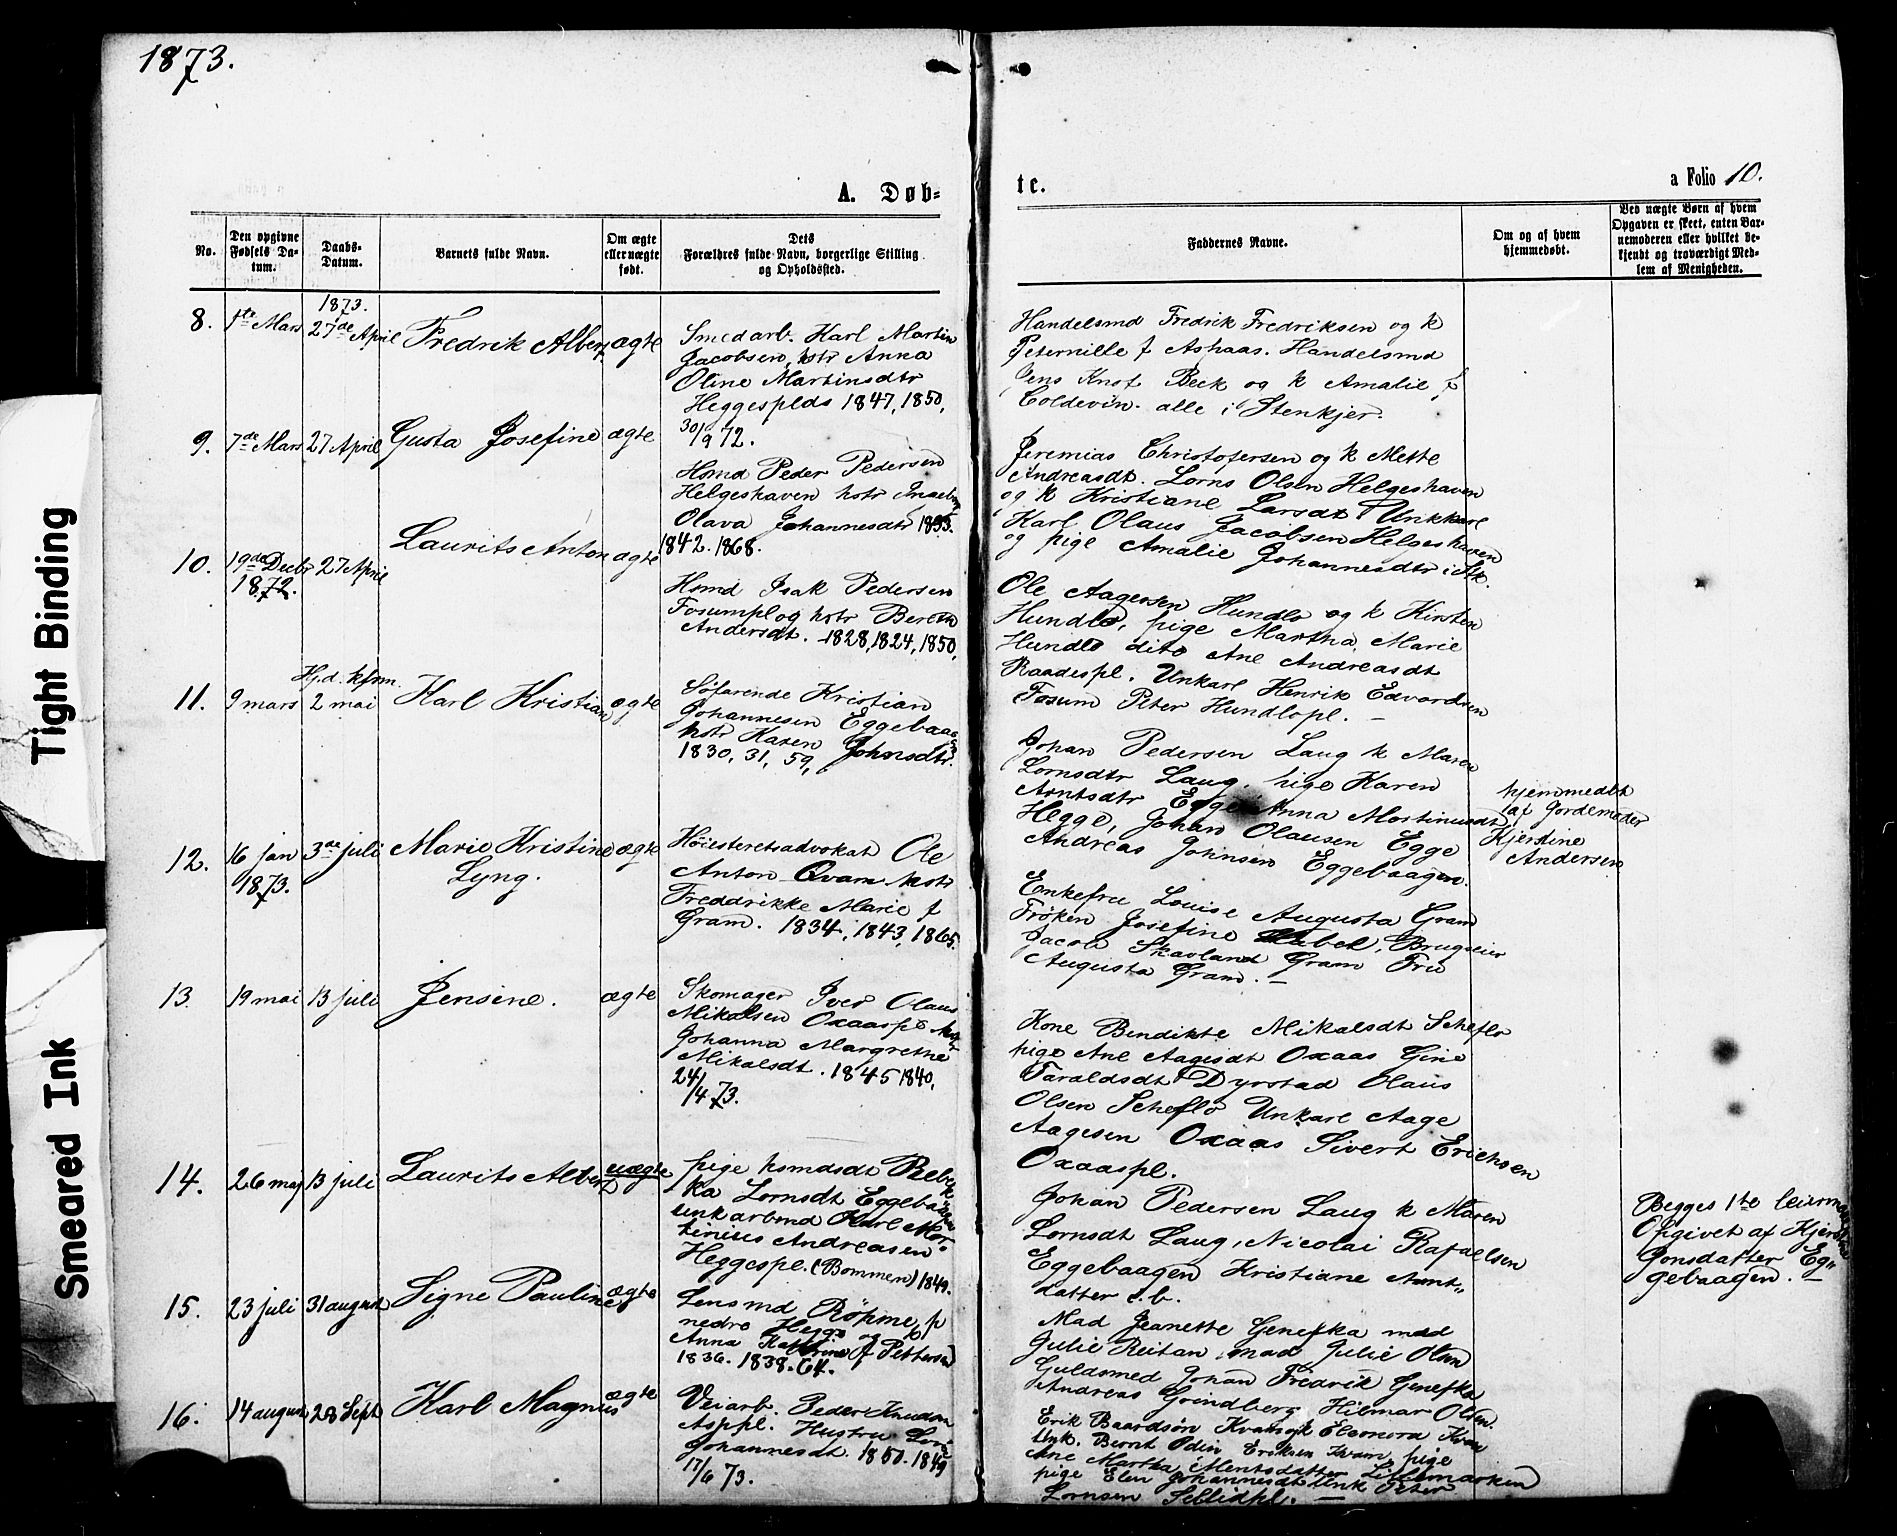 1873.
A. Døb-
te.
a Folio 10.
No.
Den opgivne
Fødsels Da-
tum.
Daabs-
Datum.
Barnets fulde Navn.
Om ægte
eller uægte
født.
Dets
Forældres fulde Navn, borgerlige Stilling
og Opholdssted.
Faddernes Navne.
Om og af hvem
hjemmedøbt.
Ved uægte Børn af hvem
Opgaven er skeet, enten Bar-
nemoderen eller hvilket be-
kjendt og troværdigt Med-
lem af Menigheden.
1873.
8. 1te Mars 27de April Fredrik Albert ægte
Smedarb. Karl Martin
Jacobsen, hstr Anna
Oline Martinsdtr
Heggesplds 1847, 1850,
30/9 72.
Handelsmd Fredrik Fredriksen og k
Peternille f Ashaas. Handelsmd
Jens Knof Beck og k Amalie f
Coldevin. alle i Stenkjer.
9. 7de Mars 27 April Gusta Josefine ægte
Hsmd Peder Pedersen
Helgeshaven hstr Ingebor
Olava Johannesdtr 1835.
1842. 1868.
Jeremias Christofersen og k Mette
Andreasdt. Lorns Olsen Helgeshaven
og k Kristiane Larsdt Unkkarl
Karl Olaus Jacobsen Helgeshaven
og pige Amalie Johannesdtr i Stk.
10. 19de Decbr 27 April Laurits Anton ægte
1872.
Hsmd Isak Pedersen
Fosumpl og hstr Bereth
Andersdt. 1828, 1824, 1850,
Ole Aagesen Hundlo og k Kirsten
Hundlo, pige Martha Marie
Hundlo dito Ane Andreasdt
Raadespl. Unkarl Henrik Edvardsen
Fosum Peter Hundlopl. —
Hj.d. kfrm.
11. 9 mars 2 mai Karl Kristian ægte
Søfarende Kristian
Johannesen Eggebaagen
hstr Karen Johnsdtr.
1830, 31, 59,
Johan Pedersen Laug k Maren
Lornsdtr Laug, pige Karen
Arntsdtr Egge Anna Martinusdt
Hegge, Johan Olausen Egge
Andreas Johnsen Eggebaagen.
hjemmedbt
af Jordemoder
Kjerstine
Andersen
12. 16 jan 3de juli Marie Kristine ægte
1873. Lyng.
Høiesteretsadvokat Ole
Anton Qvam hstr
Freddrikke Marie f
Gram. 1834, 1843, 1865.
Enkefru Louise Augusta Gram
Frøken Josefine Brugseier
Jacob Skavland Gram Fru
Augusta Gram. —
13. 19 mai 13 juli Jensine. ægte
Skomager Iver Olaus
Mikalsen Oxaaspl hstr
Johanna Margrethe
Mikalsdt. 1845 1840,
24/4 73.
Kone Bendikte Mikalsdt Scheflo
pige Ane Aagesdt Oxaas Gine
Taraldsdt Dyrstad Olaus
Olsen Scheflo Unkarl Aage
Aagesen Oxaas Sivert Erichsen
Oxaaspl.
14. 26 maj 13 juli Laurits Albert uægte
pige hsmdsdt Rebek
ka Lornsdt Eggebaagen
unk arbmd Karl Mor-
tinius Andreasen
Heggespl. (Bommen) 1849.
Johan Pedersen Laug k Maren
Lornsdt Laug, Nicolai Rafaelsen
Eggebaagen Kristiane Arnt„
datter s.b.
Begges 1te leiermaal
Opgivet af Kjerstine
Jonsdatter Eg„
gebaagen. —
15. 23 juli 31 august Signe Pauline ægte
Lensmd Röhme, p
nedre Hegge og k
Anna Kathrine f Pettersen
1836. 1838. 64.
Mad Jeanette Genefka mad
Julie Reitan, mad Julie Olsen
Guldsmed Johan Fredrik Genefka
Andreas Grindberg Hilmar Olsen.
16. 14 august 28 Sept Karl Magnus ægte
Veiarb. Peder Knudsen
Asppl. Hustru
Johannesdt. 1850. 1849
17/6 73.
Erik Baardsøn Kvam og k Eleonora Kvam
Unk. Bernt Odin Eriksen Kvam, pige
Ane Martha Mentsdatter Lillemarken
pige Elen Johannesdt Unk Peter
Lornsen Sellidpl. —
Tight Binding
Smeared Ink